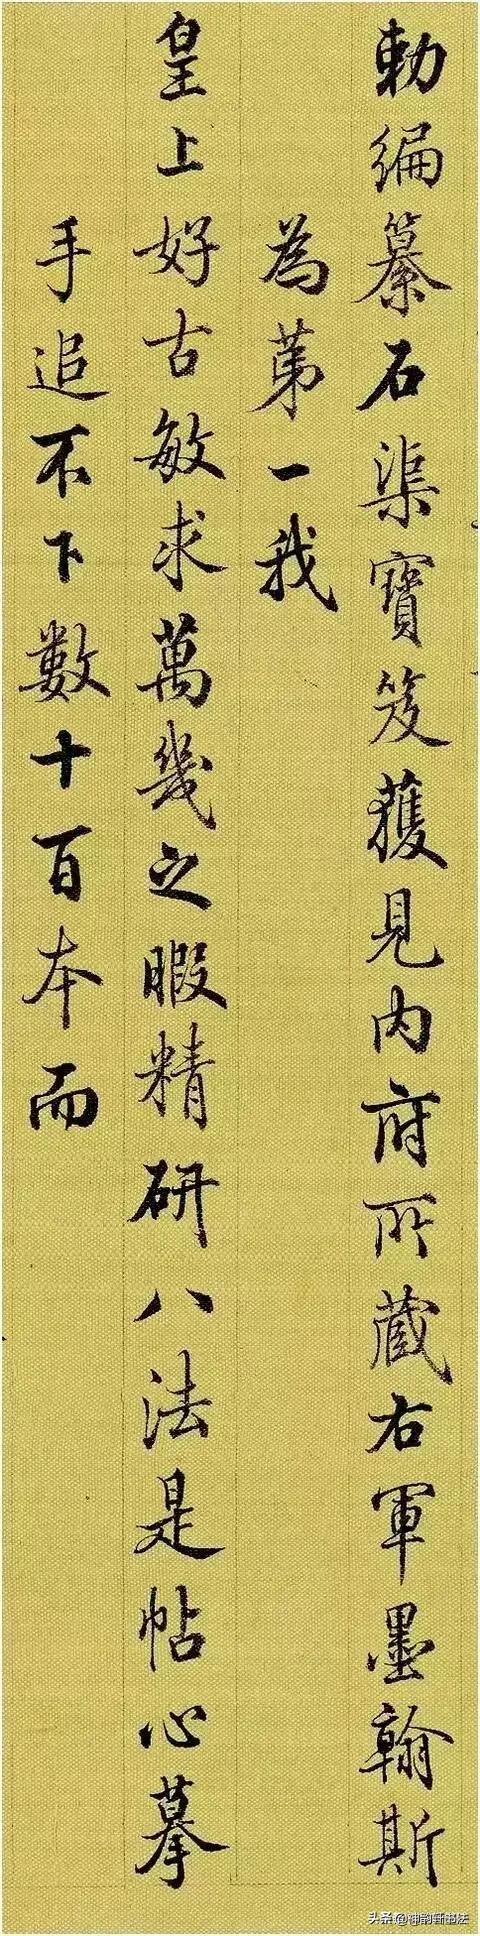 勅編纂石渠寶笈獲見內府所蔵右軍墨翰斯
為苐一我
皇上好古敏求萬幾之暇精研八法是帖心摹
手追不下數十百本而
头条@神韵轩书法